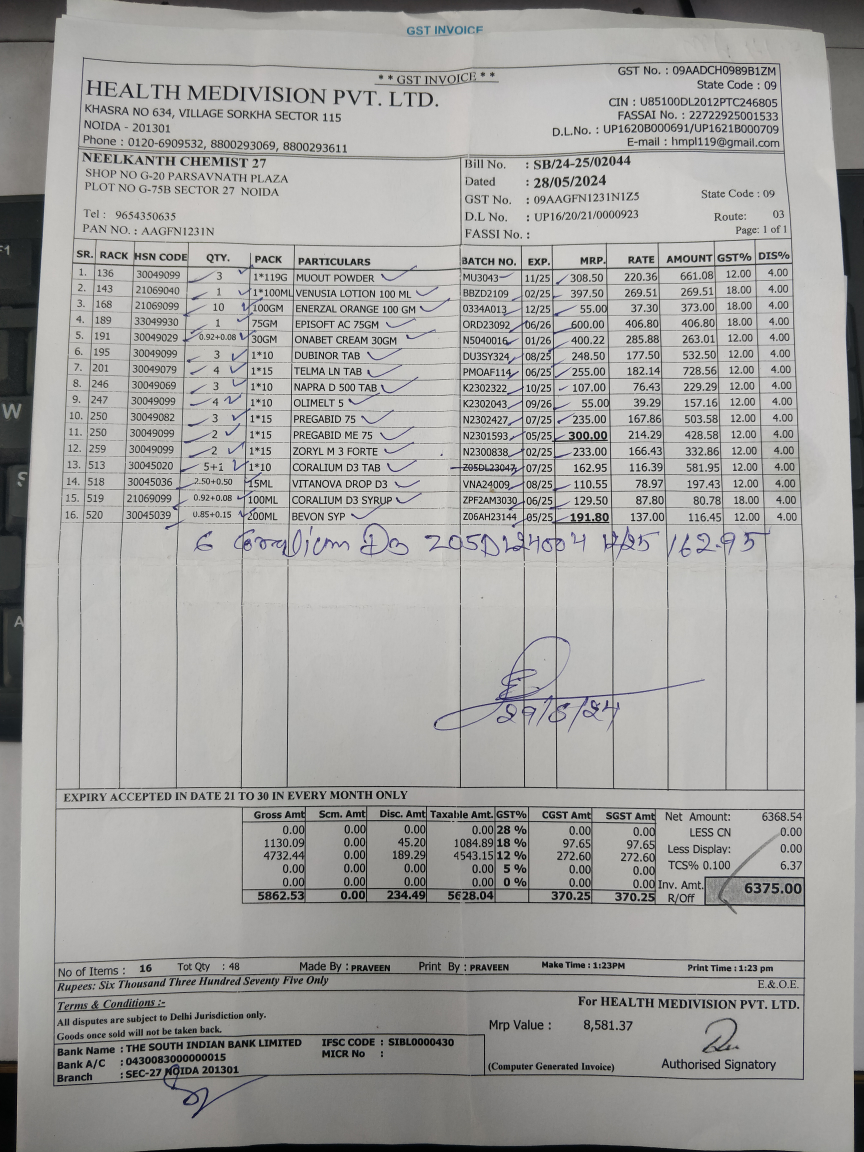 GST INVOICE
* * GST INVOICE * *
HEALTH MEDIVISION PVT. LTD.
KHASRA NO 634, VILLAGE SORKHA SECTOR 115
NOIDA - 201301
Phone : 0120-6909532, 8800293069, 8800293611
GST No. : 09AADCH0989B1ZM
State Code : 09
CIN : U85100DL2012PTC246805
FASSAI No. : 22722925001533
D.L.No. : UP1620B000691/UP1621B000709
E-mail : hmpl119@gmail.com
NEELKANTH CHEMIST 27
SHOP NO G-20 PARSAVNATH PLAZA
PLOT NO G-75B SECTOR 27 NOIDA
Tel : 9654350635
PAN NO. : AAGFN1231N
Bill No. : SB/24-25/02044
Dated : 28/05/2024
GST No. : 09AAGFN1231N1Z5 State Code : 09
D.L No. : UP16/20/21/0000923 Route: 03
FASSI No. : Page: 1 of 1
SR. RACK HSN CODE QTY. PACK PARTICULARS BATCH NO. EXP. MRP. RATE AMOUNT GST% DIS%
1. 136 30049099 3 1*119G MUOUT POWDER MU3043 11/25 308.50 220.36 661.08 12.00 4.00
2. 143 21069040 1 1*100ML VENUSIA LOTION 100 ML BBZD2109 02/25 397.50 269.51 269.51 18.00 4.00
3. 168 21069099 10 100GM ENERZAL ORANGE 100 GM 0334A013 12/25 55.00 37.30 373.00 18.00 4.00
4. 189 33049930 1 75GM EPISOFT AC 75GM ORD23092 06/26 600.00 406.80 406.80 18.00 4.00
5. 191 30049029 0.92+0.08 30GM ONABET CREAM 30GM N5040016 01/26 400.22 285.88 263.01 12.00 4.00
6. 195 30049099 3 1*10 DUBINOR TAB DU3SY324 08/25 248.50 177.50 532.50 12.00 4.00
7. 201 30049079 4 1*15 TELMA LN TAB PMOAF114 06/25 255.00 182.14 728.56 12.00 4.00
8. 246 30049069 3 1*10 NAPRA D 500 TAB K2302322 10/25 107.00 76.43 229.29 12.00 4.00
9. 247 30049099 4 1*10 OLIMELT 5 K2302043 09/26 55.00 39.29 157.16 12.00 4.00
10. 250 30049082 3 1*15 PREGABID 75 N2302427 07/25 235.00 167.86 503.58 12.00 4.00
11. 250 30049099 2 1*15 PREGABID ME 75 N2301593 05/25 300.00 214.29 428.58 12.00 4.00
12. 259 30049099 2 1*15 ZORYL M 3 FORTE N2300838 02/25 233.00 166.43 332.86 12.00 4.00
13. 513 30045020 5+1 1*10 CORALIUM D3 TAB Z05DL23047 07/25 162.95 116.39 581.95 12.00 4.00
14. 518 30045036 2.50+0.50 15ML VITANOVA DROP D3 VNA24009 08/25 110.55 78.97 197.43 12.00 4.00
15. 519 21069099 0.92+0.08 100ML CORALIUM D3 SYRUP ZPF2AM3030 06/25 129.50 87.80 80.78 18.00 4.00
16. 520 30045039 0.85+0.15 200ML BEVON SYP Z06AH23144 05/25 191.80 137.00 116.45 12.00 4.00
6 Coralium D3 Z05DL24004 12/25 162.95
29/5/24
EXPIRY ACCEPTED IN DATE 21 TO 30 IN EVERY MONTH ONLY
Gross Amt Scm. Amt Disc. Amt Taxable Amt. GST% CGST Amt SGST Amt
0.00 0.00 0.00 0.00 28 % 0.00 0.00
1130.09 0.00 45.20 1084.89 18 % 97.65 97.65
4732.44 0.00 189.29 4543.15 12 % 272.60 272.60
0.00 0.00 0.00 0.00 5 % 0.00 0.00
0.00 0.00 0.00 0.00 0 % 0.00 0.00
5862.53 0.00 234.49 5628.04 370.25 370.25
Net Amount: 6368.54
LESS CN 0.00
Less Display: 0.00
TCS% 0.100 6.37
Inv. Amt. 6375.00
R/Off
No of Items : 16 Tot Qty : 48 Made By : PRAVEEN Print By : PRAVEEN Make Time : 1:23PM Print Time : 1:23 pm
Rupees: Six Thousand Three Hundred Seventy Five Only E.&O.E.
Terms & Conditions :-
All disputes are subject to Delhi Jurisdiction only.
Goods once sold will not be taken back.
Bank Name : THE SOUTH INDIAN BANK LIMITED IFSC CODE : SIBL0000430
Bank A/C : 0430083000000015 MICR No :
Branch : SEC-27 NOIDA 201301
For HEALTH MEDIVISION PVT. LTD.
Mrp Value : 8,581.37
(Computer Generated Invoice) Authorised Signatory